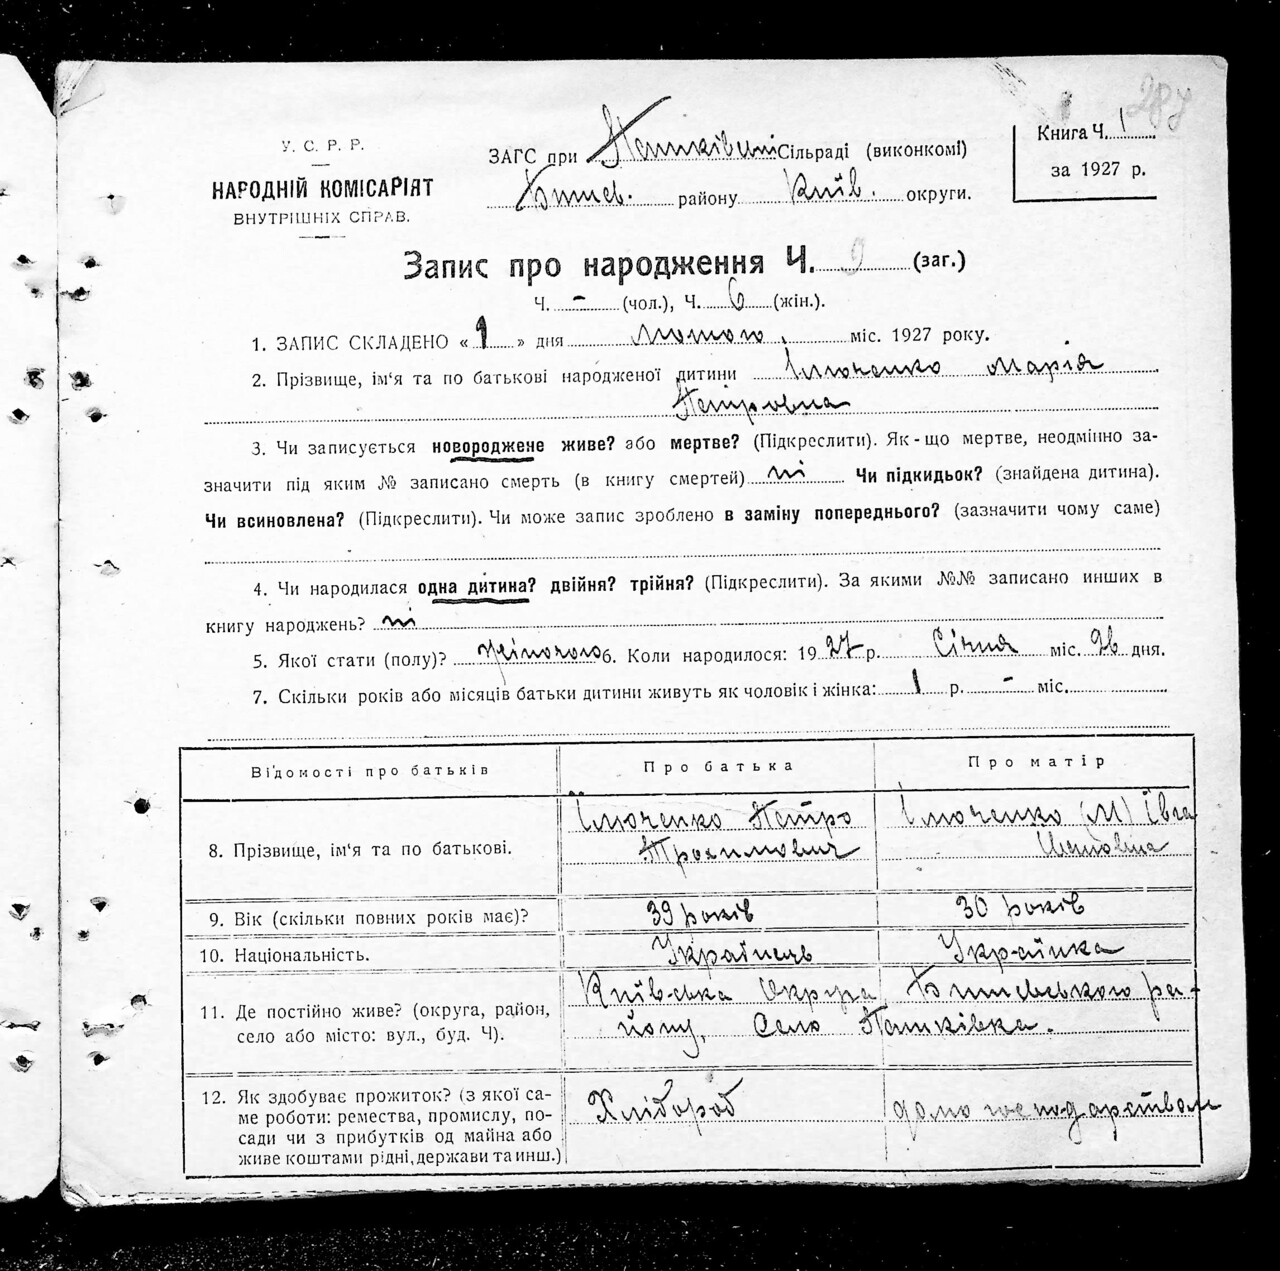 287
У. С. Р. Р.
НАРОДНІЙ КОМІСАРІЯТ
ВНУТРІШНІХ СПРАВ.
ЗАГС при Пашківській Сільраді (виконкомі)
Бишев. району Київ. округи.
Книга Ч. 1
за 1927 р.
Запис про народження Ч. 9 (заг.)
Ч. - (чол.), Ч. 6 (жін.).
1. ЗАПИС СКЛАДЕНО « 1 » дня лютого міс. 1927 року.
2. Прізвище, ім'я та по батькові народженої дитини Ілюченко Марія
Петровна
3. Чи записується новороджене живе? або мертве? (Підкреслити). Як-що мертве, неодмінно за-
значити під яким № записано смерть (в книгу смертей) ні Чи підкидьок? (знайдена дитина).
Чи всиновлена? (Підкреслити). Чи може запис зроблено в заміну попереднього? (зазначити чому саме)
4. Чи народилася одна дитина? двійня? трійня? (Підкреслити). За якими №№ записано инших в
книгу народжень? ні
5. Якої стати (полу)? жіночого 6. Коли народилося: 1927 р. Січня міс. 26 дня.
7. Скільки років або місяців батьки дитини живуть як чоловік і жінка: 1 р. - міс.
Відомості про батьків Про батька Про матір
8. Прізвище, ім'я та по батькові. Ілюченко Петро Ілюченко (М) Івга
Трохимович
9. Вік (скільки повних років має)? 39 років 30 років
10. Національність. Українець Українка
11. Де постійно живе? (округа, район, село або місто: вул., буд. Ч). Київська Округа Бишевського ра-
йону, Село Пашківка.
12. Як здобуває прожиток? (з якої са-
ме роботи: ремества, промислу, по-
сади чи з прибутків од майна або
живе коштами рідні, держави та инш.)
Хлібороб домогосподарством